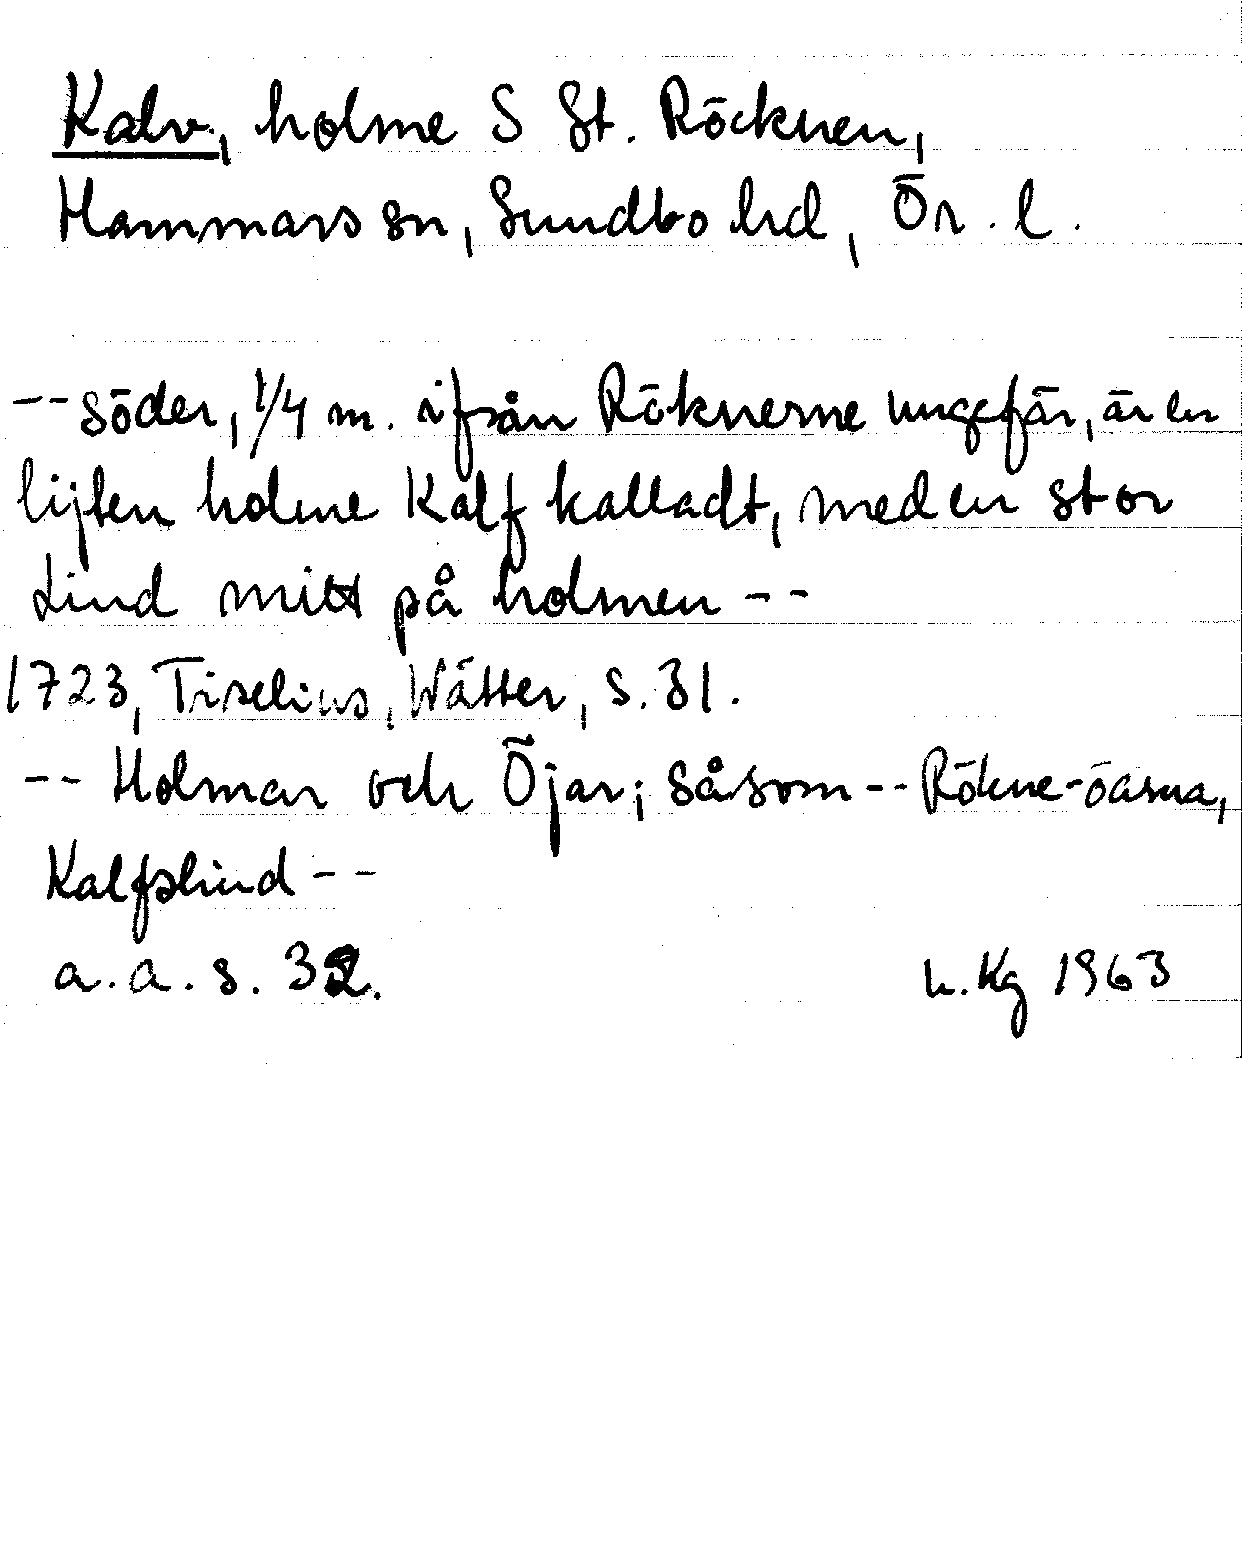 Kalv, holme S St. Röcknen,
Hammars sn, Sundbo hd, Ör. l.
-- söder, 1/4 m. ifrån Röknerne ungefär, är en
lijten holme Kalf kalladt, med en stor
Lind mitt på holmen --
1723, Tiselius, Wätter, s. 31.
-- Holmar och Öjar; såsom -- Rökne-öarna,
Kalfslind --
a. a. s. 32. h. Kg 1963